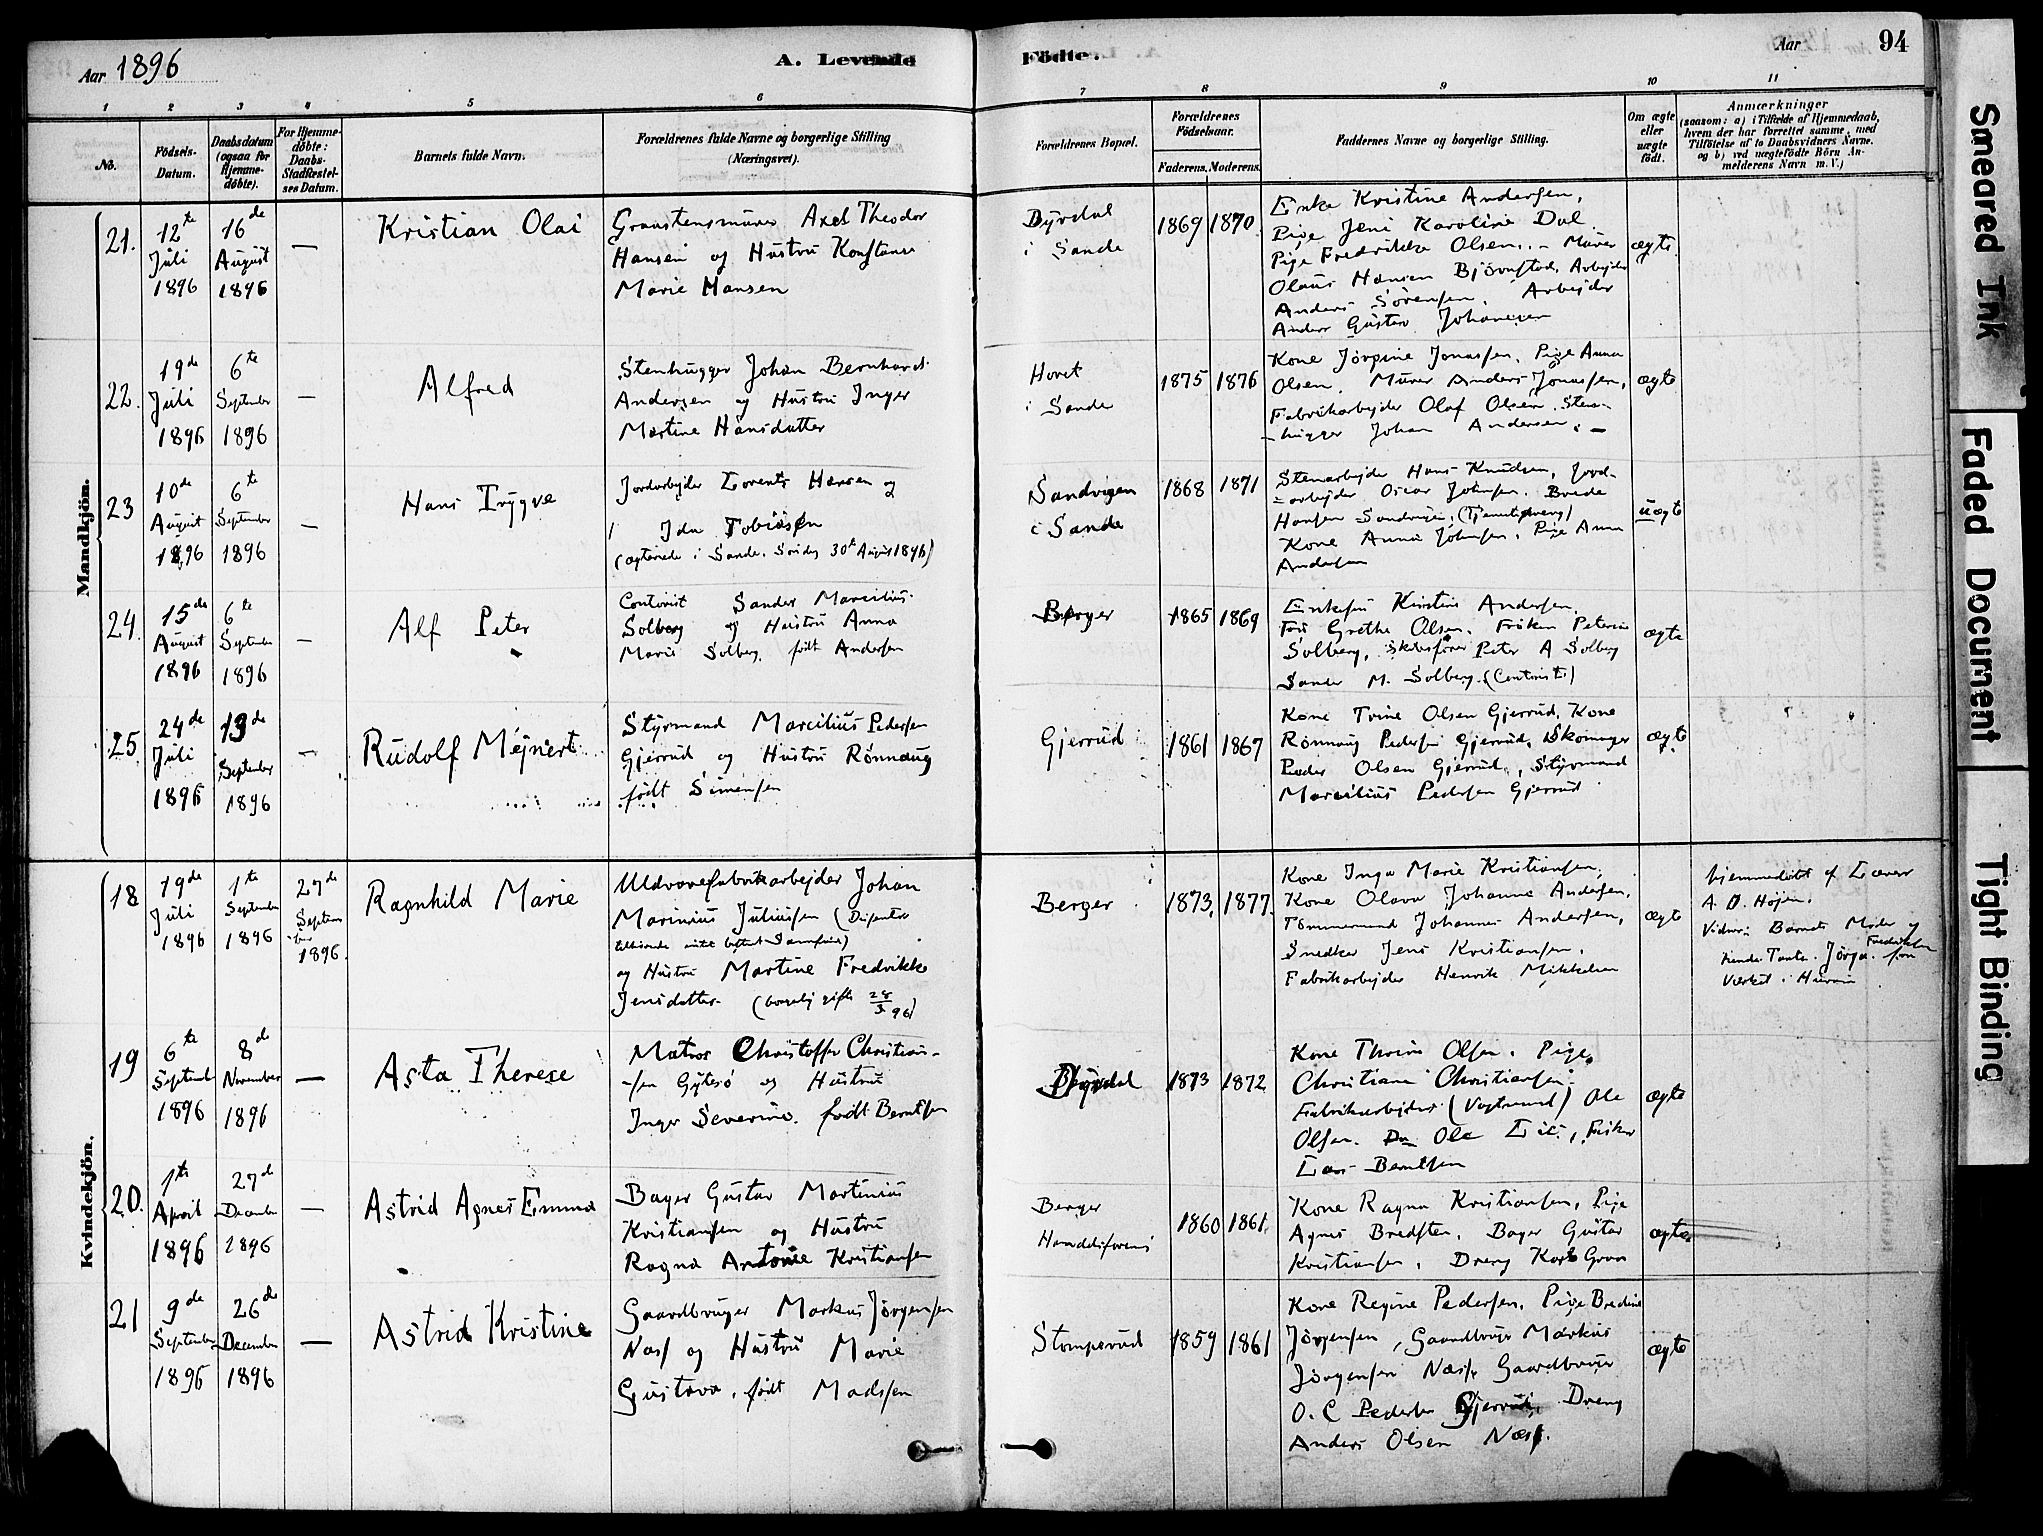 Aar 1896
A. Levende
Födte.
Aar
94
1
2
3
4
5
6
7
8
9
10
11
No.
Födsels-
Datum.
Daabsdatum
(ogsaa for
Hjemme-
döbte).
For Hjemme-
döbte:
Daabs-
Stadfæstel-
ses Datum.
Barnets fulde Navn.
Forældrenes fulde Navne og borgerlige Stilling
(Næringsvei).
Forældrenes Bopæl.
Forældrenes
Födselsaar.
Faderens.
Moderens.
Faddernes Navne og borgerlige Stilling.
Om ægte
eller
uægte
födt.
Anmærkninger
(saasom: a) i Tilfælde af Hjemmedaab,
hvem der har forrettet samme, med
Tilföielse af to Daabsvidners Navne.
og b) ved uægtefödte Börn An-
melderens Navn m. V.)
Mandkjön.
21.
12te
Juli
1896
16de
August
1896
—
Kristian Olai
Graastensmurer Axel Theodor
Hansen og Hustru Konstanse
Marie Hansen
Dyrdal
i Sande
1869
1870
Enke Kristine Andersen,
Pige Jeni Karoline Dal
Pige Fredrikke Olsen. - Murer
Olaus Hansen Björnstad, Arbejder
Anders Sörensen. Arbejder
Anders Gustav Johansen
ægte
22.
19de
Juli
1896
6te
September
1896
—
Alfred
Stenhugger Johan Bernhard
Andersen og Hustru Inger
Martine Hansdatter
Hovet
i Sande
1875
1876
Kone Jörgine Jonassen, Pige Anna
Olsen. Murer Anders Jonassen,
Fabrikarbejder Olaf Olsen, Sten-
hugger Johan Andersen. —
ægte
23
10de
August
1896
6te
September
1896
—
Hans Trygve
Jordarbejder Lorents Hansen og
Ida Tobiasen
(ægteviede i Sande. Söndag 30te August 1896)
Sandvigen
i Sande
1868
1871
Stenarbejder Hans Knudsen, Jord-
arbejder Oscar Johnsen. Brede
Hansen Sandvigen, (Tjenestedreng)
Kone Anna Johnsen, Pige Anna
Andersen
uægte
24.
15de
August
1896
6te
September
1896
—
Alf Peter
Contorist Sander Marcilius
Solberg og Hustru Anna
Marie Solberg, født Andersen
Berger
1865
1869
Enkefru Kirstine Andersen,
Fru Grethe Olsen. Fröken Petrine
Solberg, Skibsförer Peter A Solberg
Sander M. Solberg. (Contorist)
ægte
25
24de
Juli
1896
13de
September
1896
—
Rudolf Mejnert
Styrmand Marcilius Pedersen
Gjerrud og Hustru Rönnaug
født Simensen
Gjerrud
1861
1867
Kone Trine Olsen Gjerrud, Kone
Rønnaug Pedersen Gjerrud, Skomager
Peder Olsen Gjerrud, Styrmand
Marcilius Pedersen Gjerrud
ægte
Kvindekjön.
18
19de
Juli
1896
1te
September
1896
27de
Septem-
ber
1896.
Ragnhild Marie
Uldvarefabrikarbejder Johan
Marinius Juliussen (Dissenter
og Hustru Martine Fredrikke
Jensdatter (borgelig gifte 28/3 96)
Berger
1873,
1877.
Kone Inga Marie Kristiansen,
Kone Olava Johanne Andersen,
Tömmermand Johannes Andersen,
Snedker Jens Kristiansen.
Fabrikarbejder Henrik Mikkelsen
ægte
hjemmedöbt af Lærer
A. O. Højen.
Vidner: Barnets Moder og
hendes Tante Jörga Fredriksen fra
Værket i Hurum
19
6te
September
1896
8de
November
1896
—
Asta Therese
Matros Christoffer Christian-
sen Gytesö og Hustru
Inger Severine, født Berntsen
Dyrdal
1873
1872
Kone Thrine Olsen. Pige
Christiane Christiansen.
Fabrikarbejder (Vegtmand) Ole
Olsen. Ole Lie, Fisker
Lars Berntsen
ægte
20.
1te
April
1896
27de
December
1896
—
Astrid Agnes Emma
Bager Gustav Martinius
Kristiansen og Hustru
Ragna Antonie Kristiansen
Berger
1860
1861.
Kone Ragna Kristiansen, Pige
Agnes Bredsten, Bager Gustav
Kristiansen, Dreng Karl Gran
ægte
21
9de
September
1896
26de
December
1896
—
Astrid Kristine
Gaardbruger Markus Jörgensen
Næss og Hustru Marie
Gustava, født Madsen
Stomperud
1859
1861
Kone Regine Pedersen, Pige Bredine
Jörgensen, Gaardbruger Markus
Jörgensen Næss, Gaardbruger
O. C Pedersen Gjerrud, Dreng
Anders Olsen Næss.
ægte
Smeared Ink
Faded Document
Tight Binding